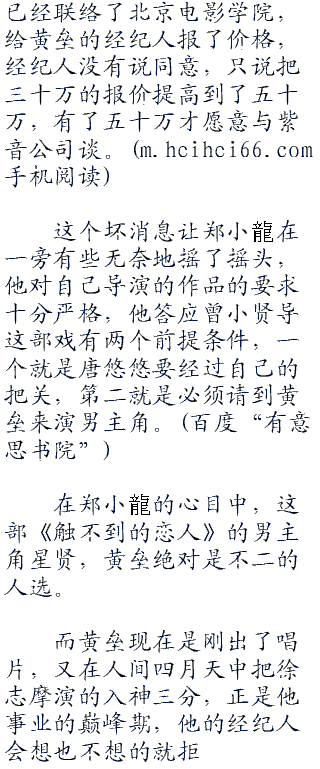 已经联络了北京电影学院，
给黄垒的经纪人报了价格，
经纪人没有说同意，只说把
三十万的报价提高到了五十
万，有了五十万才愿意与紫
音公司谈。(m.hcihci66.com
手机阅读)
这个坏消息让郑小龍在
一旁有些无奈地摇了摇头，
他对自己导演的作品的要求
十分严格，他答应曾小贤导
这部戏有两个前提条件，一
个就是唐悠悠要经过自己的
把关，第二就是必须请到黄
垒来演男主角。(百度“有意
思书院”)
在郑小龍的心目中，这
部《触不到的恋人》的男主
角星贤，黄垒绝对是不二的
人选。
而黄垒现在是刚出了唱
片，又在人间四月天中把徐
志摩演的入神三分，正是他
事业的巅峰期，他的经纪人
会想也不想的就拒